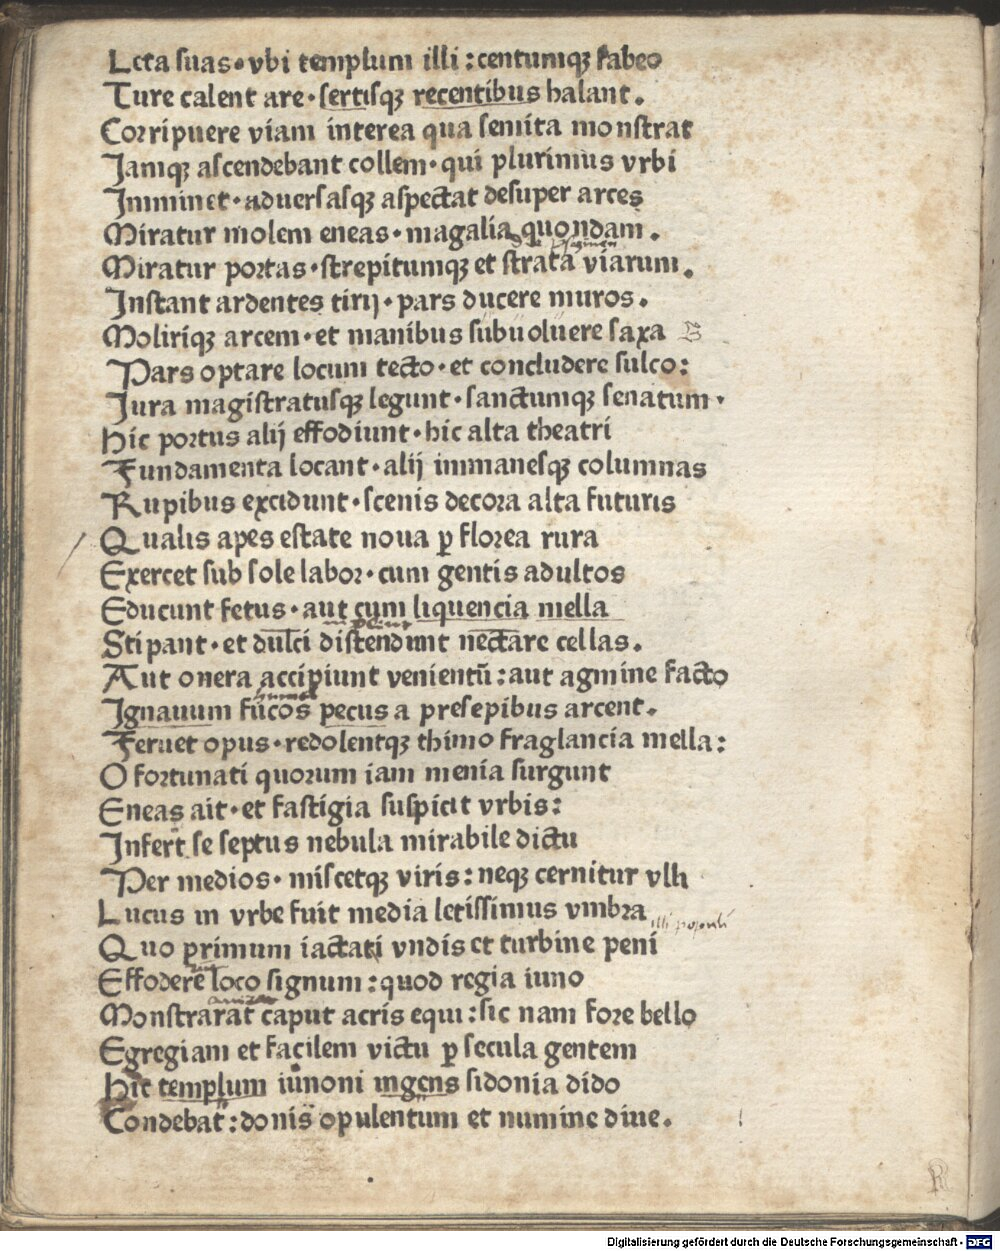 Leta suas · vbi templum illi : centumqꝫ sabeo
Ture calent are · sertisqꝫ recentibus halant .
Corripuere viam interea qua semita monstrat
Jamqꝫ ascendebant collem · qui plurimus vrbi
Imminet · aduersasqꝫ aspectat desuper arces
Miratur molem eneas · magalia quondam .
Miratur portas · strepitumqꝫ et strata viarum .
Instant ardentes tirij · pars ducere muros .
Moliriqꝫ arcem · et manibus subuoluere saxa
Pars optare locum tecto · et concludere sulco :
Jura magistratusqꝫ legunt · sanctumqꝫ senatum ·
Hic portus alij effodiunt · hic alta theatri
Fundamenta locant · alij immanesqꝫ columnas
Rupibus excidunt · scenis decora alta futuris
Qualis apes estate noua ꝑ florea rura
Exercet sub sole labor · cum gentis adultos
Educunt fetus · aut cum liquencia mella
Stipant · et dulci distendunt nectare cellas .
Aut onera accipiunt venientũ : aut agmine facto
Ignauum fucos pecus a presepibus arcent .
Feruet opus · redolentqꝫ thimo fraglancia mella :
O fortunati quorum iam menia surgunt
Eneas ait · et fastigia suspicit vrbis :
Infert se septus nebula mirabile dictu
Per medios · miscetqꝫ viris : neqꝫ cernitur vlli
Lucus in vrbe fuit media letissimus vmbra
illi populi
Quo primum iactati vndis et turbine peni
Effodere loco signum : quod regia iuno
Monstrarat caput acris equi : sic nam fore bello
Egregiam et facilem victu ꝑ secula gentem
Hic templum iunoni ingens sidonia dido
Condebat : donis opulentum et numine diue .
Digitalisierung gefördert durch die Deutsche Forschungsgemeinschaft - DFG